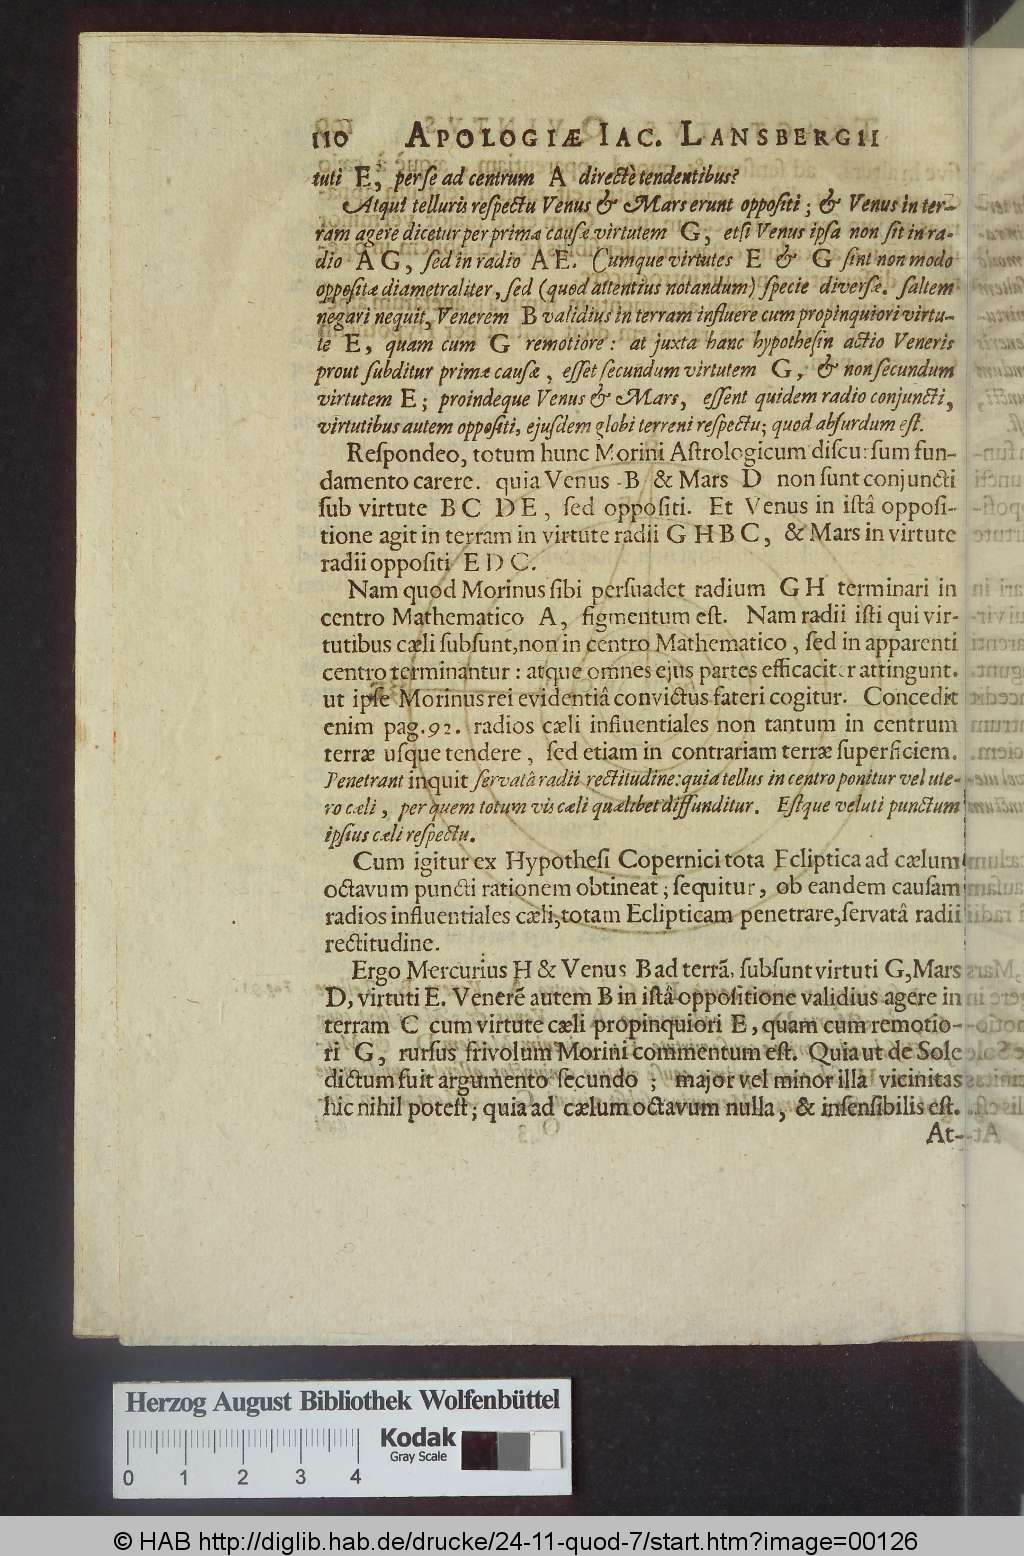 110 APOLOGIÆ IAC. LANSBERGII
tuti E, per ſe ad centrum A directè tendentibus?
Atqui telluris reſpectu Venus & Mars erunt oppoſiti; & Venus in ter-
ram agere dicetur per primæ cauſæ virtutem G, etſi Venus ipſa non ſit in ra-
dio A G, ſed in radio A E. Cumque virtutes E & G ſint non modo
oppoſitæ diametraliter, ſed (quod attentius notandum) ſpecie diverſæ. ſaltem
negari nequit, Venerem B validius in terram influere cum propinquiori virtu-
te E, quam cum G remotiore: at juxta hanc hypotheſin actio Veneris
prout ſubditur primæ cauſæ, eſſet ſecundum virtutem G, & non ſecundum
virtutem E; proindeque Venus & Mars, eſſent quidem radio conjuncti,
virtutibus autem oppoſiti, ejuſdem globi terreni reſpectu; quod abſurdum eſt.
Reſpondeo, totum hunc Morini Aſtrologicum diſcurſum fun-
damento carere. quia Venus B & Mars D non ſunt conjuncti
ſub virtute B C D E, ſed oppoſiti. Et Venus in iſtâ oppoſi-
tione agit in terram in virtute radii G H B C, & Mars in virtute
radii oppoſiti E D C.
Nam quod Morinus ſibi perſuadet radium G H terminari in
centro Mathematico A, figmentum eſt. Nam radii iſti qui vir-
tutibus cæli ſubſunt, non in centro Mathematico, ſed in apparenti
centro terminantur: atque omnes ejus partes efficaciter attingunt.
ut ipſe Morinus rei evidentiâ convictus fateri cogitur. Concedit
enim pag. 92. radios cæli influentiales non tantum in centrum
terræ uſque tendere, ſed etiam in contrariam terræ ſuperficiem.
Penetrant inquit ſervatâ radii rectitudine: quia tellus in centro ponitur vel ute-
ro cæli, per quem totum vis cæli quælibet diffunditur. Eſtque veluti punctum
ipſius cæli reſpectu.
Cum igitur ex Hypotheſi Copernici tota Ecliptica ad cælum
octavum puncti rationem obtineat; ſequitur, ob eandem cauſam
radios influentiales cæli, totam Eclipticam penetrare, ſervatâ radii
rectitudine.
Ergo Mercurius H & Venus B ad terrā, ſubſunt virtuti G, Mars
D, virtuti E. Venerē autem B in iſtâ oppoſitione validius agere in
terram C cum virtute cæli propinquiori E, quam cum remotio-
ri G, rurſus frivolum Morini commentum eſt. Quia ut de Sole
dictum fuit argumento ſecundo; major vel minor illa vicinitas
hic nihil poteſt; quia ad cælum octavum nulla, & inſenſibilis eſt.
At-
Herzog August Bibliothek Wolfenbüttel
Kodak
Gray Scale
0 1 2 3 4
© HAB http://diglib.hab.de/drucke/24-11-quod-7/start.htm?image=00126